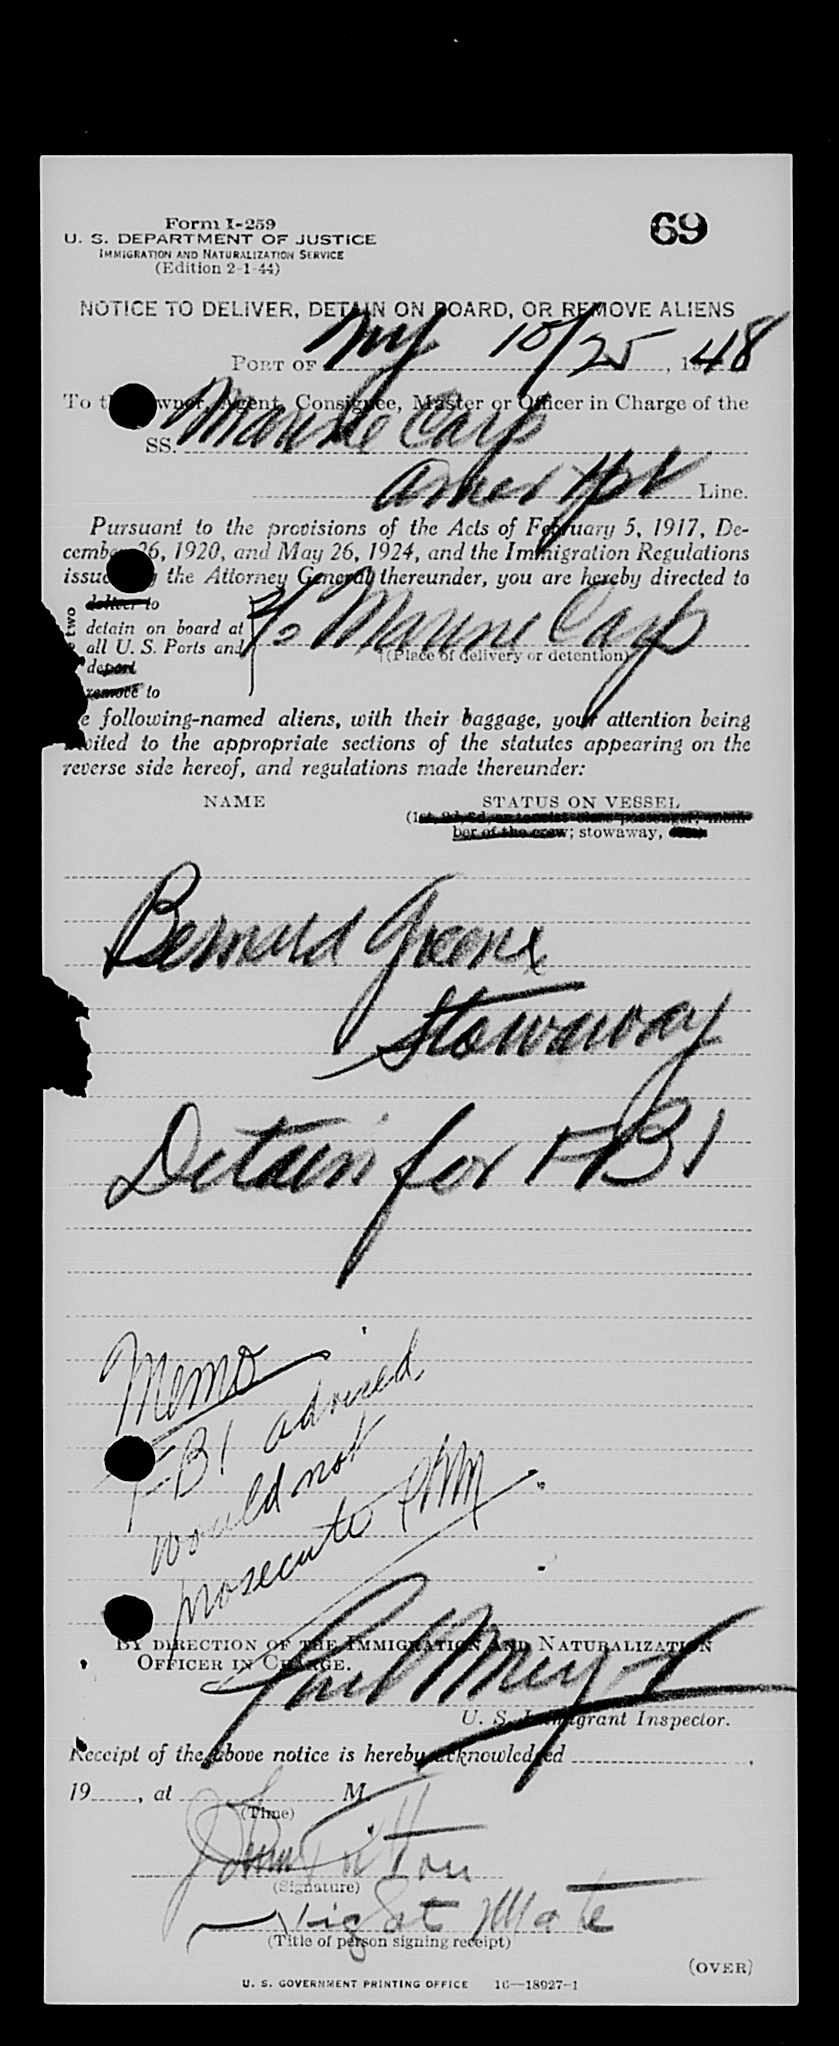 Form I-259
69
U. S. DEPARTMENT OF JUSTICE
IMMIGRATION AND NATURALIZATION SERVICE
(Edition 2-1-44)
NOTICE TO DELIVER, DETAIN ON BOARD, OR REMOVE ALIENS
PORT OF NY 10/25, 1948
To the Owner, Agent, Consignee, Master or Officer in Charge of the
SS. Marine Carp
Line.
Pursuant to the provisions of the Acts of February 5, 1917, De-
cember 26, 1920, and May 26, 1924, and the Immigration Regulations
issued by the Attorney General thereunder, you are hereby directed to
deliver to
detain on board at
all U. S. Ports and
deport
remove to
two
To Marine Carp
(Place of delivery or detention)
the following-named aliens, with their baggage, your attention being
invited to the appropriate sections of the statutes appearing on the
reverse side hereof, and regulations made thereunder:
NAME STATUS ON VESSEL
(1st, 2d, 3d, or tourist class passenger; mem-
ber of the crew; stowaway,
Bernard Greene
Stowaway
Detain for FBI
Memo
FBI advised
would not
prosecute
BY DIRECTION OF THE IMMIGRATION AND NATURALIZATION
OFFICER IN CHARGE.
U. S. Immigrant Inspector.
Receipt of the above notice is hereby acknowledged ,
19 , at M
(Time)
John
(Signature)
Night Mate
(Title of person signing receipt)
(OVER)
U. S. GOVERNMENT PRINTING OFFICE 16—18927-1